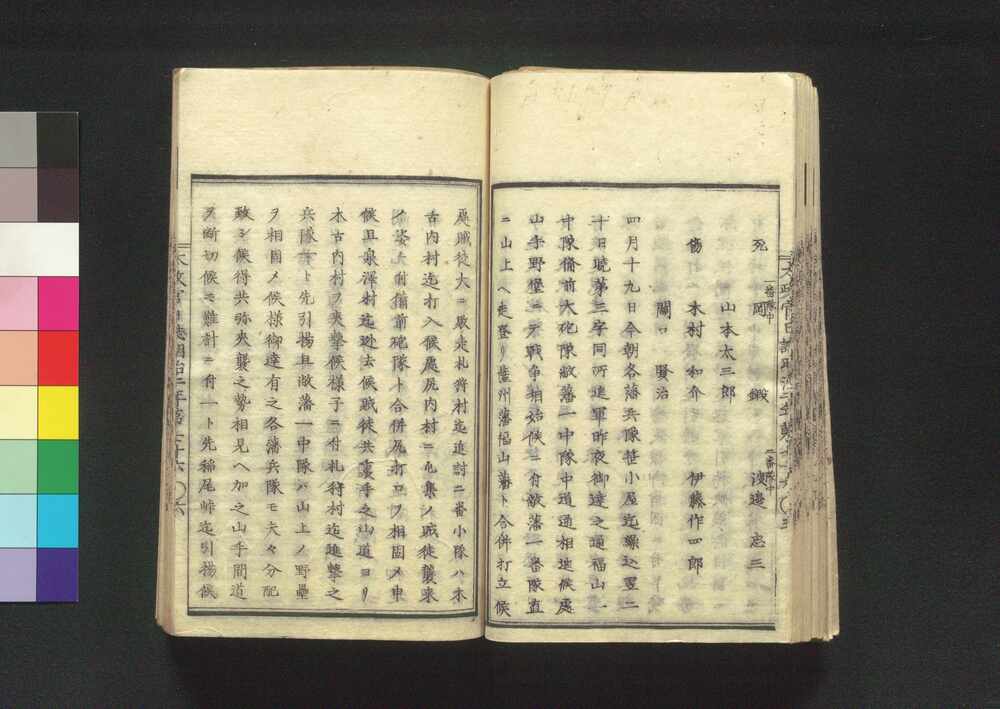 死 岡 鍛 渡邊 忠三
一番隊中 二番隊中
山本太三郎
傷 木村和介 伊藤作四郎
關口 賢治
四月十九日今朝各藩兵隊笹小屋迄繰込翌二
十日曉第三字同所進軍昨夜御達之通福山一
中隊備前大砲隊敝藩一中隊中道通相進候處
山手野壘ニテ戰争相始候ニ付敝藩一番隊直
ニ山上ヘ走登リ藩州藩福山藩ト合併打立候
處賊徒大ニ敗走札狩村迄進討二番小隊ハ木
古内村迄打入候處尻内村ニ屯集ノ賊徒襲来
ノ姿ニ付備前砲隊ト合併尻打口ヲ相固メ申
候且泉澤村迄逊去候賊徒共裏手之山道ヨリ
木古内村ヲ夾撃候様子ニ付札狩村迄進撃之
兵隊ト先引揚且敝藩一中隊ハ山上ノ野壘
ヲ相固メ候様御達有之各藩兵隊モ夫々分配
致シ候得共弥夾襲之勢相見ヘ加之山手間道
ヲ断切候モ難計ニ付一ト先稀尾峠迄引揚候
太政官日誌明治二年第 六